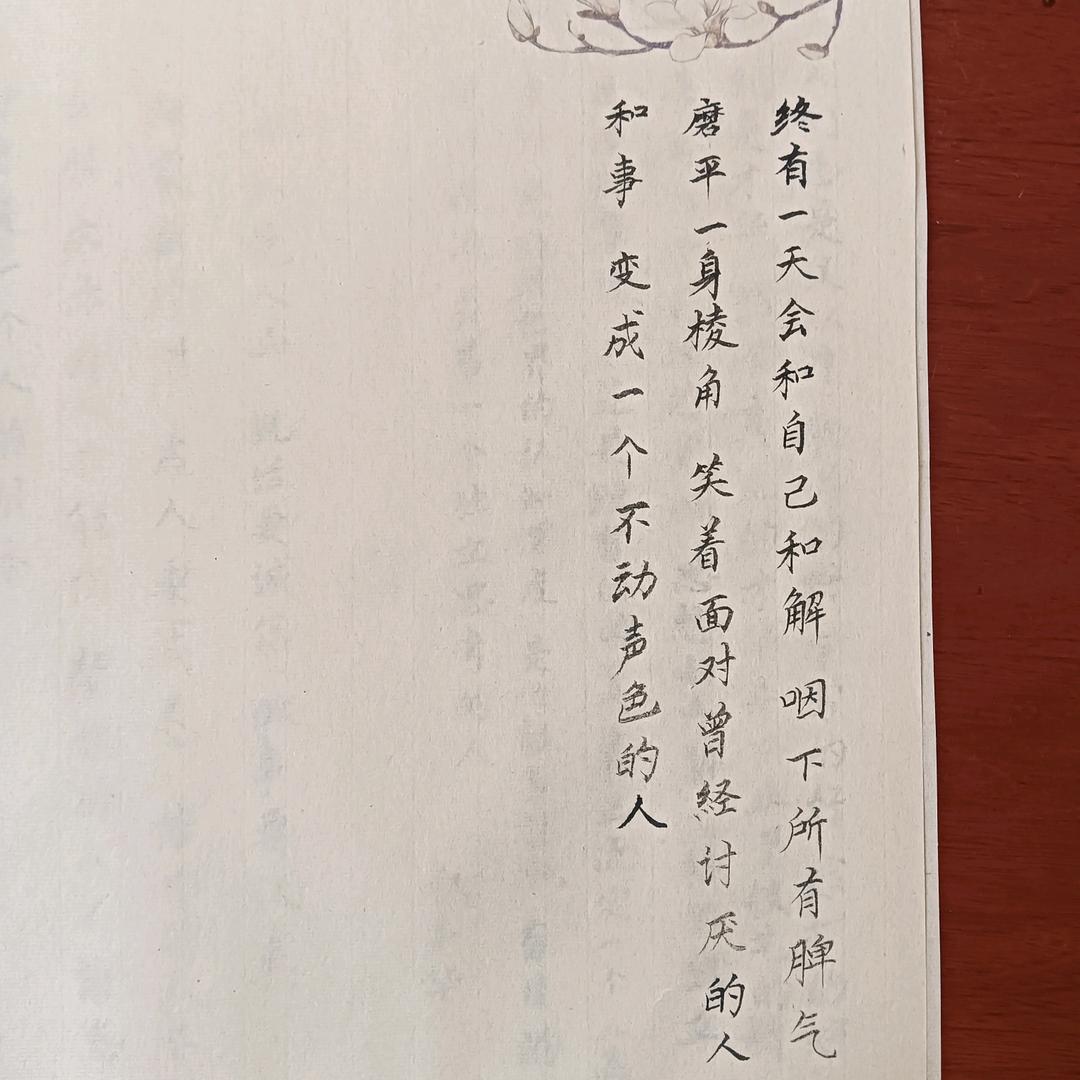 终有一天会和自己和解 咽下所有脾气
磨平一身棱角 笑着面对曾经讨厌的人
和事 变成一个不动声色的人